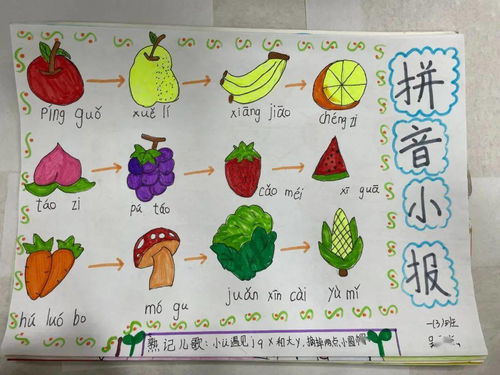 píng guǒ
xuě lí
xiāng jiāo
chéng zi
táo zi
pú táo
cǎo méi
xī guā
hú luó bo
mó gu
juǎn xīn cài
yù mǐ
拼
音
小
报
一(3)班
熟记儿歌:小ü遇见j q x和大y,摘掉两点小圆帽